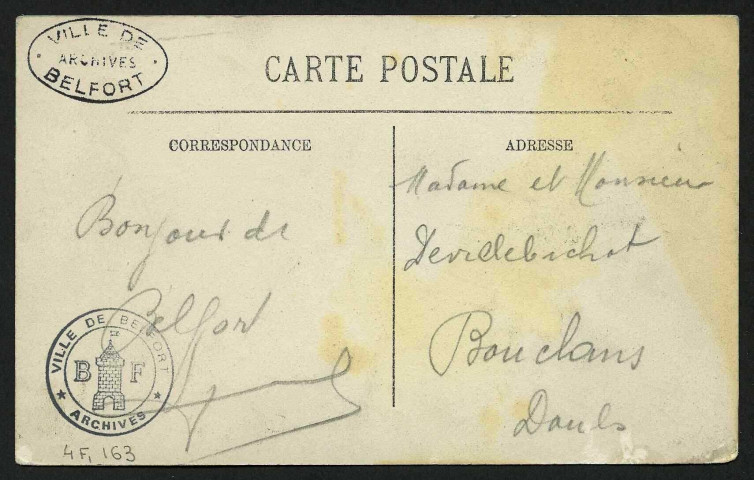 VILLE DE
ARCHIVES
BELFORT
CARTE POSTALE
CORRESPONDANCE
ADRESSE
Bonjour de
Belfort
Madame et Monsieur
Devidebichot
Bouclans
Doubs
VILLE DE BELFORT
B F
★ ARCHIVES ★
4 Fi 163